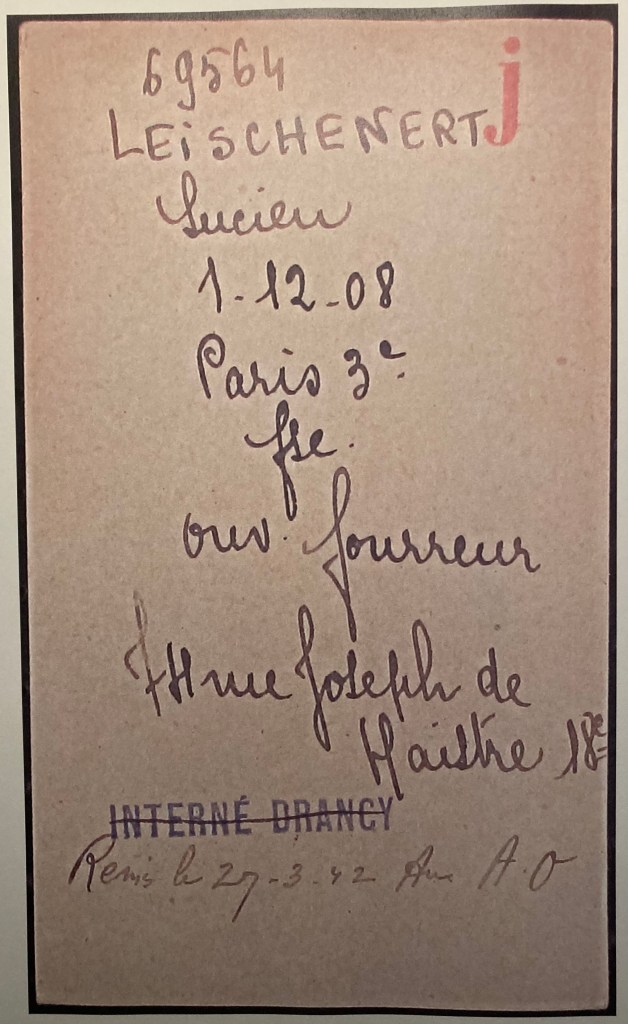 69564
j
LEiSCHENERT
Lucien
1-12-08
Paris 3e
fse.
ouv. fourreur
rue Joseph de
Maistre 18e
INTERNÉ DRANCY
Remis le 27-3-42 Aux A.O